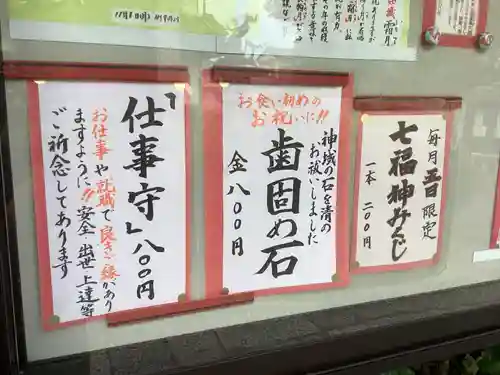 毎月五日限定
七福神みくじ
一本 二〇〇円
お食い初めの
お祝いに!!
神域の石を清の
お祓いしました
歯固め石
金 八〇〇円
「仕事守」八〇〇円
お仕事や就職で良きご縁があり
ますように!!安全 出世 上達等
ご祈念してあります